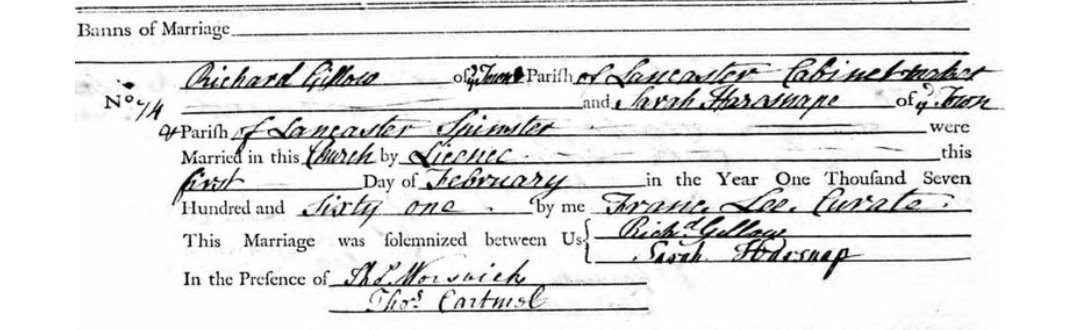 Banns of Marriage
Richard Gillow of yͤ Town & Parish of Lancaster Cabinetmaker
No 74 and Sarah Haresnape of yͤ Town
& Parish of Lancaster Spinster were
Married in this Church by Licence this
first Day of February in the Year One Thousand Seven
Hundred and Sixty one . by me Franc. Lee. Curate .
This Marriage was solemnized between Us Richd Gillow
Sarah Haresnap
In the Presence of Thos Worswick
Thos Cartmel